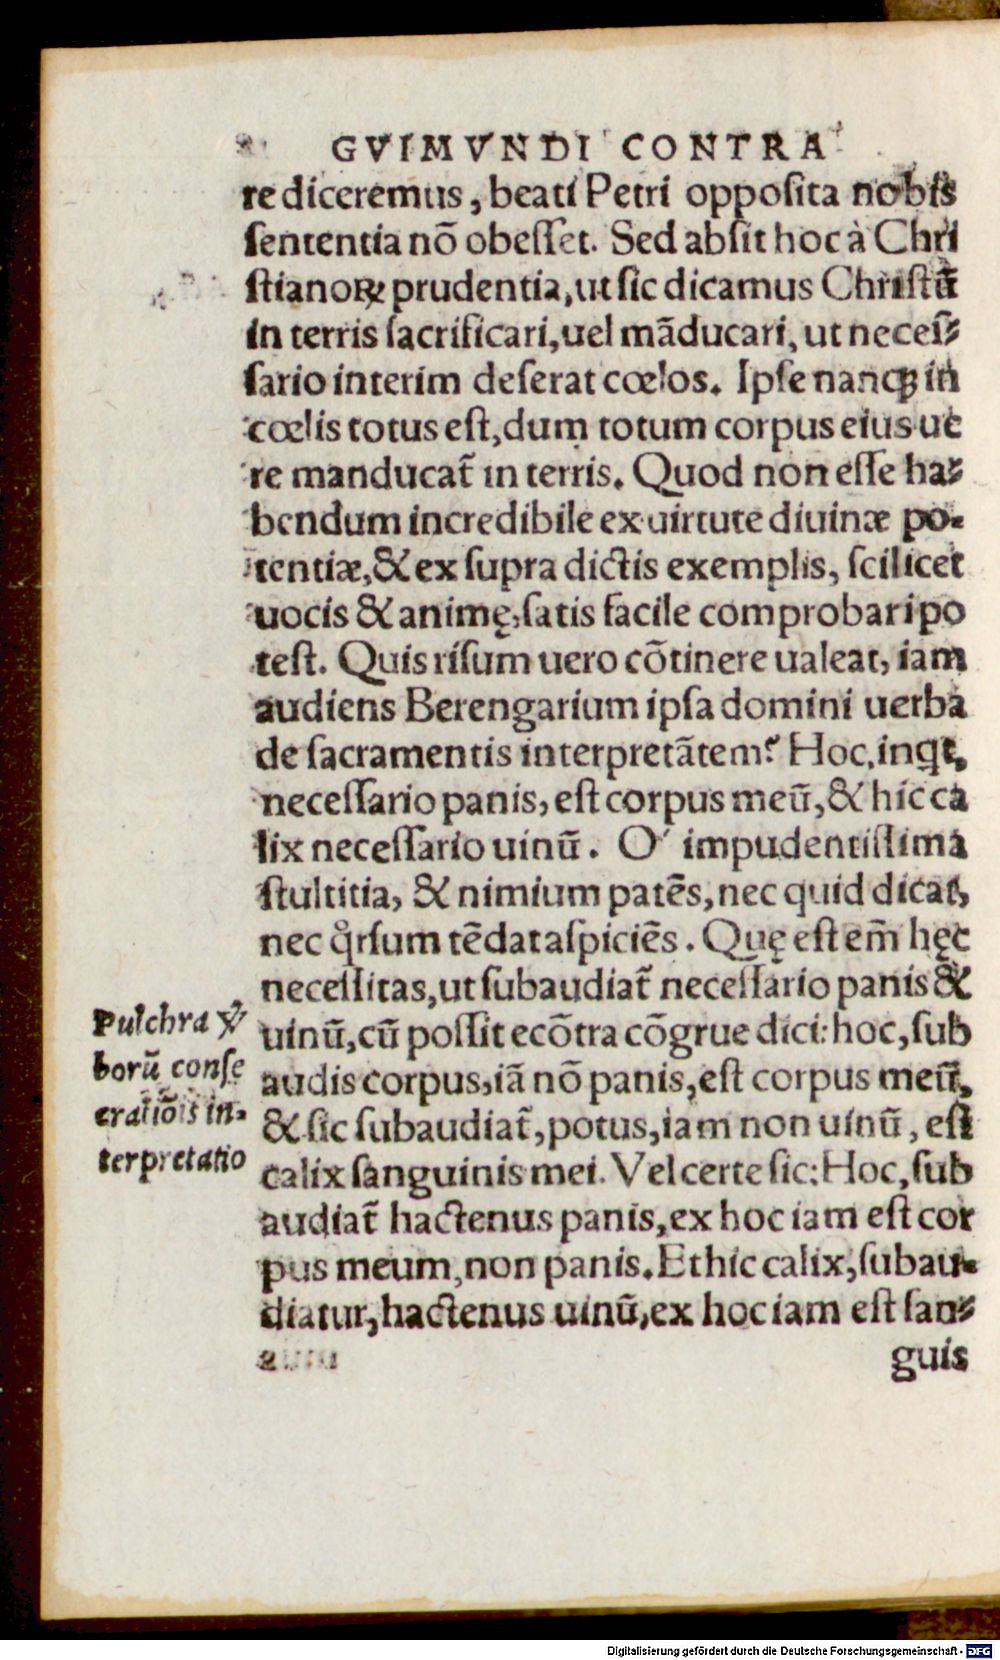 GVIMVNDI CONTRA
re diceremus, beati Petri opposita nobis
ſententia nõ obeſſet. Sed absit hoc à Chri
ſtianoꝝ prudentia, ut ſic dicamus Chriſtũ
in terris ſacrificari, uel mãducari, ut neceſ⸗
ſario interim deſerat cœlos. Ipſe nancꝫ in
cœlis totus eſt, dum totum corpus eius ue
re manducat̃ in terris. Quod non eſſe ha⸗
bendum incredibile ex uirtute diuinæ po⸗
tentiæ, & ex ſupra dictis exemplis, ſcilicet
uocis & animę, ſatis facile comprobari po
teſt. Quis riſum uero cõtinere ualeat, iam
audiens Berengarium ipſa domini uerba
de ſacramentis interpretãtem? Hoc, inqt,
neceſſario panis, eſt corpus meũ, & hic ca
lix neceſſario uinũ. O impudentiſſima
ſtultitia, & nimium patẽs, nec quid dicat,
nec qͦrſum tẽdat aſpiciẽs. Quę eſt em̃ hęc
neceſſitas, ut ſubaudiat̃ neceſſario panis &
uinũ, cũ poſſit ecõtra cõgrue dici: hoc, ſub
audis corpus, iã nõ panis, eſt corpus meũ,
& ſic ſubaudiat̃, potus, iam non uinũ, eſt
calix ſanguinis mei. Vel certe ſic: Hoc, ſub
audiat̃ hactenus panis, ex hoc iam eſt cor
pus meum, non panis. Et hic calix, ſubau⸗
diatur, hactenus uinũ, ex hoc iam eſt ſan⸗
guis
Pulchra ꝟ
borũ conſe
cratiõis in⸗
terpretatio
Digitalisierung gefördert durch die Deutsche Forschungsgemeinschaft - DFG